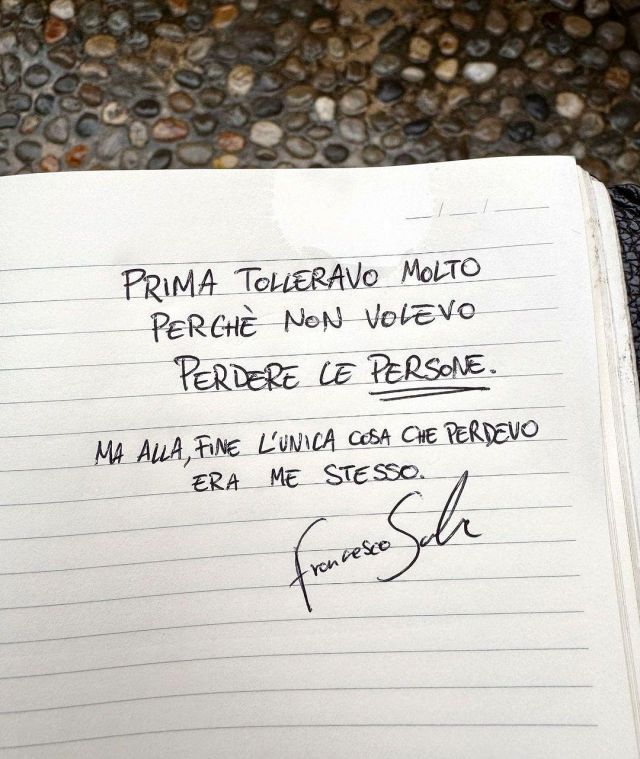 PRIMA TOLLERAVO MOLTO
PERCHÈ NON VOLEVO
PERDERE LE PERSONE.
MA ALLA, FINE L'UNICA COSA CHE PERDEVO
ERA ME STESSO.
Francesco